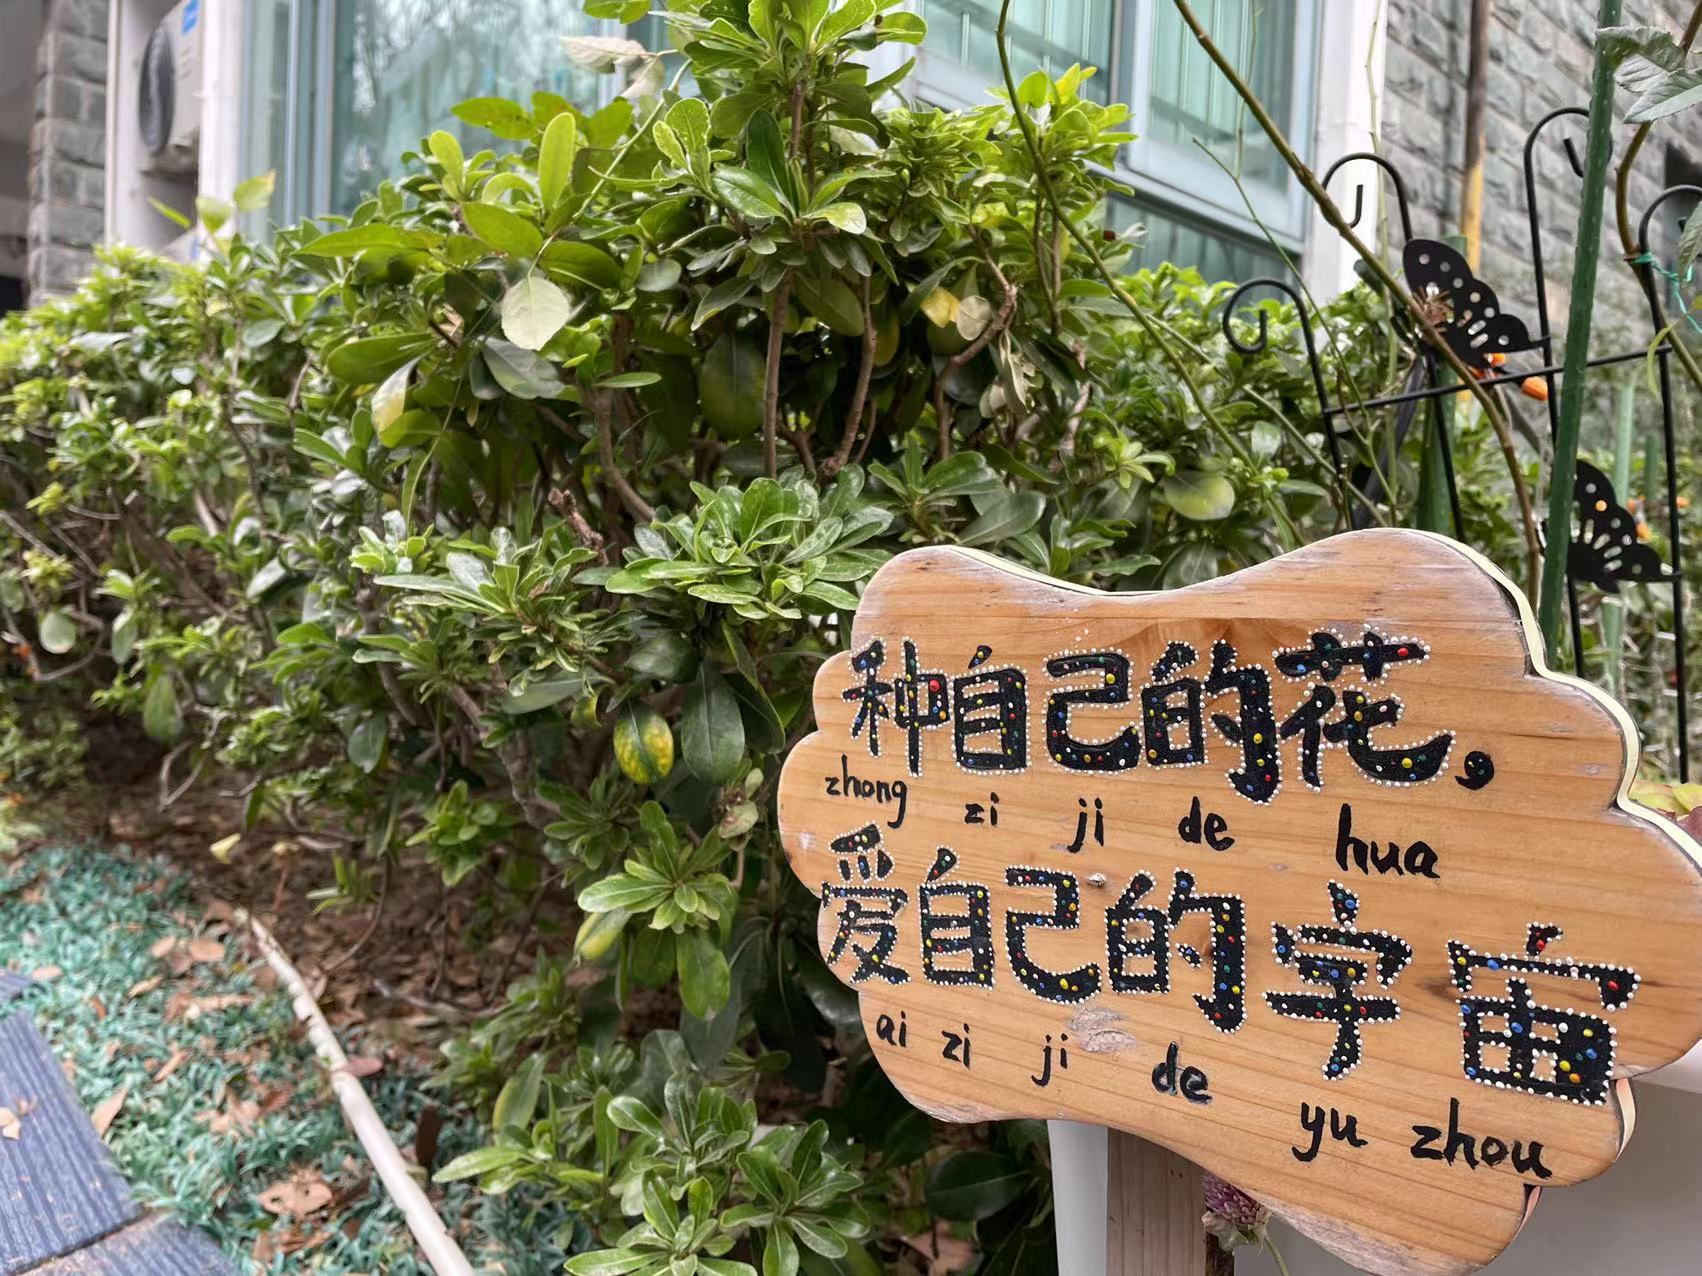 种自己的花，
zhong zi ji de hua
爱自己的宇宙
ai zi ji de yu zhou